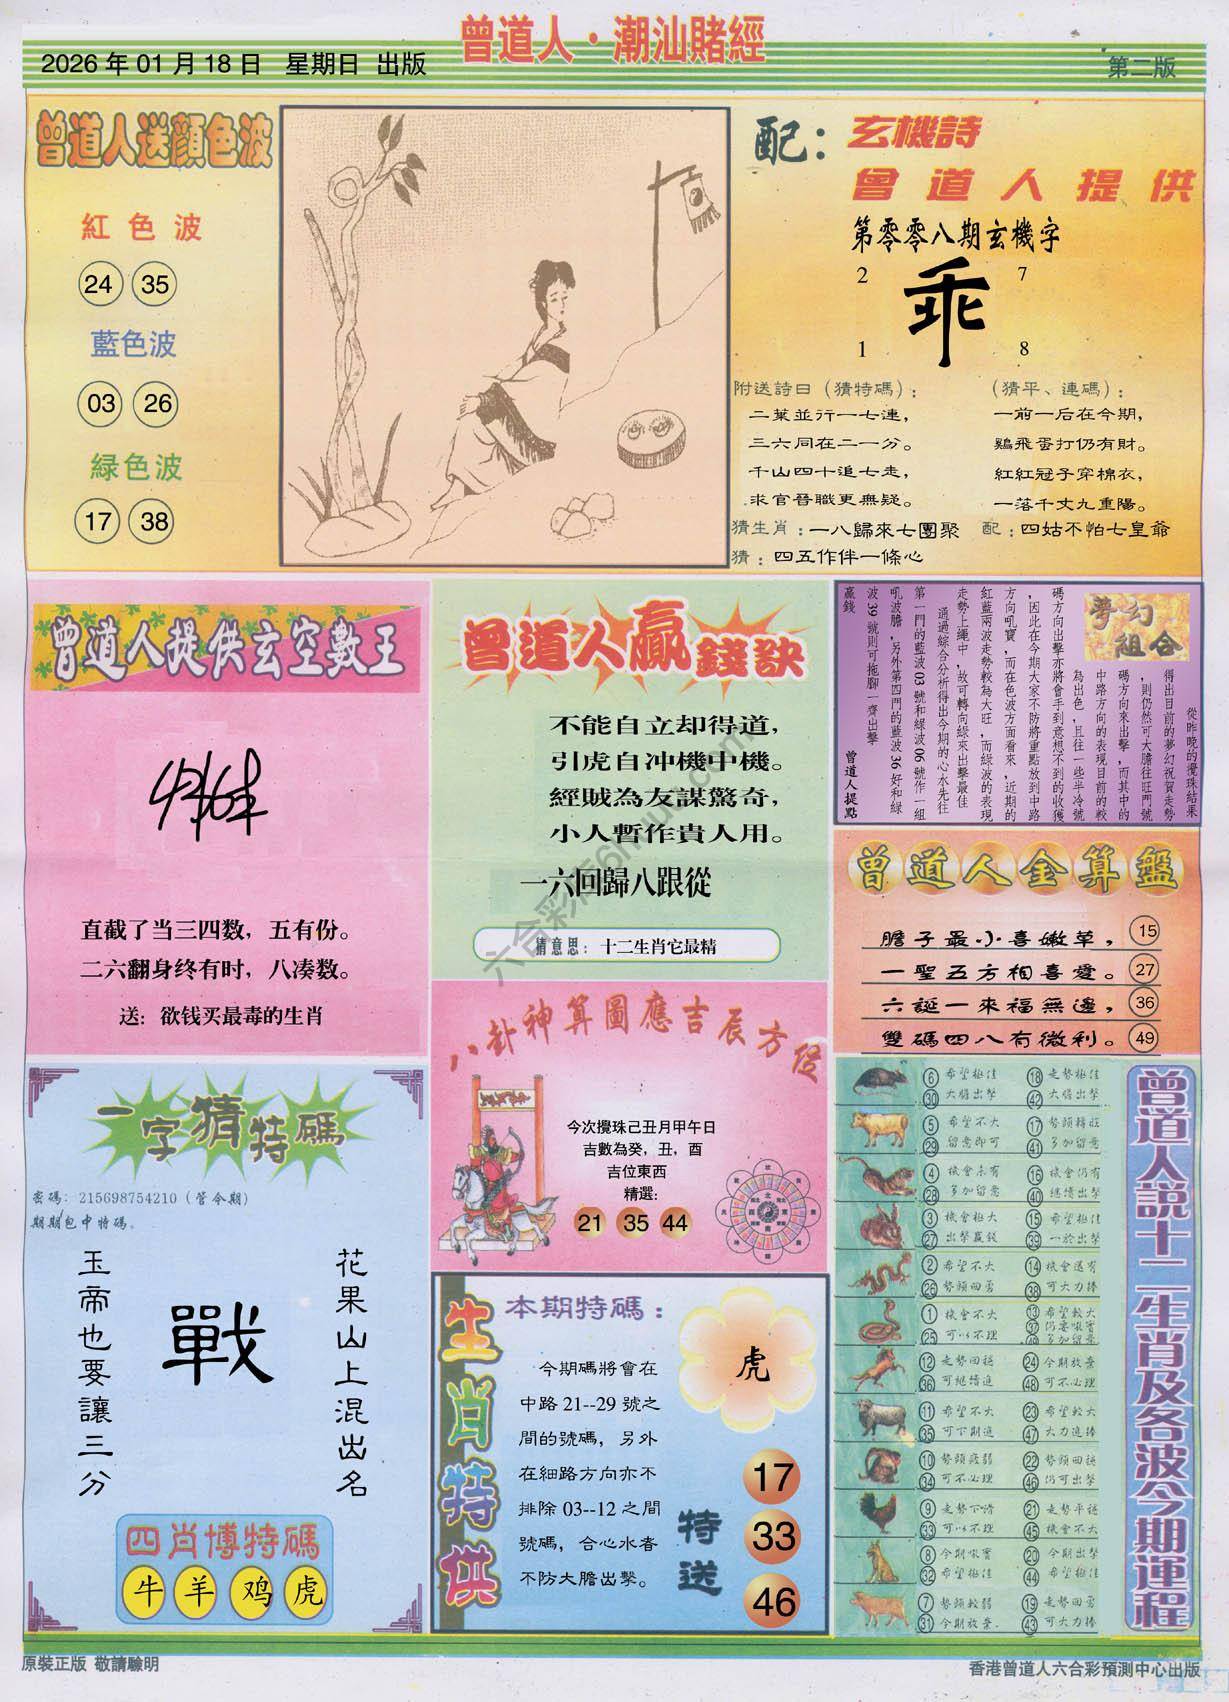 曾道人·潮汕賭經
2026年01月18日 星期日 出版
第二版
曾道人送顏色波
紅色波
24 35
藍色波
03 26
緑色波
17 38
配：玄機詩
曾道人提供
第零零八期玄機字
2 7
乖
1 8
附送詩曰（猜特碼）：
二葉並行一七連，
三六同在二一分。
千山四十追七走，
求官晉職更無疑。
（猜平、連碼）：
一前一后在今期，
鷄飛蛋打仍有財。
紅紅冠子穿棉衣，
一落千丈九重陽。
猜生肖：一八歸來七團聚
配：四姑不怕七皇爺
猜：四五作伴一條心
曾道人提供玄空數王
直截了当三四数，五有份。
二六翻身终有时，八凑数。
送：欲钱买最毒的生肖
曾道人贏錢訣
不能自立却得道，
引虎自冲機中機。
經賊為友謀驚奇，
小人暫作貴人用。
一六回歸八跟從
猜意思：十二生肖它最精
夢幻組合
從昨晚的攪珠結果
得出目前的夢幻祝賀走勢
，則仍然可大膽往旺門號
碼方向來出擊，而其中的
中路方向的表現目前的較
為出色，且往一些半冷號
碼方向出擊亦將會手到意想不到的收獲
，因此在今期大家不防將重點放到中路
方向吼寶，而在色波方面看來，近期的
紅藍兩波走勢較為大旺，而綠波的表現
走勢上繩中，故可轉向綠來出擊最佳
通過綜合分析得出今期的心水先往
第一門的藍波03號和綠波06號作一組
吼波膽，另外第四門的藍波36好和綠
波39號則可拖腳一齊出擊
贏錢
曾道人提點
曾道人金算盤
膽子最小喜嫩草， 15
一聖五方相喜愛。 27
六誕一來福無邊， 36
雙碼四八有微利。 49
八卦神算圖應吉辰方位
今次攪珠己丑月甲午日
吉數為癸，丑，酉
吉位東西
精選：
21 35 44
一字猜特碼
密碼：215698754210（管令期）
期期包中特碼。
花果山上混出名
戰
玉帝也要讓三分
四肖博特碼
牛 羊 鸡 虎
生肖特供
本期特碼：
虎
今期碼將會在
中路21--29號之
間的號碼，另外
在細路方向亦不
排除03--12之間
號碼，合心水者
不防大膽出擊。
特送
17
33
46
曾道人説十二生肖及各波今期運程
6 希望極佳 18 走勢極佳
30 大膽出擊 42 大膽出擊
5 希望不大 17 勢頭轉旺
29 留意即可 41 多加留意
4 機會未有 16 機會仍有
28 多加留意 40 繼續出擊
3 機會極大 15 希望極佳
27 出擊贏錢 39 一於出擊
2 希望不大 14 機會還有
26 勢頭回勇 38 可大力捧
1 機會不大 13 希望較大
25 可以不理 37 仍要吼實
49 多加留意
12 走勢回穩 24 今期放棄
36 可繼續追 48 可不必理
11 希望不大 23 希望較大
35 可下期追 47 大力追捧
10 勢頭疲弱 22 勢頭回穩
34 可不必理 46 仍可出擊
9 走勢下滑 21 走勢平穩
33 可以不理 45 機會不大
8 今期吼實 20 今期出擊
32 希望極佳 44 希望極佳
7 勢頭較弱 19 走勢回勇
31 今期放棄. 43 可大力捧
原裝正版 敬請驗明
香港曾道人六合彩預測中心出版